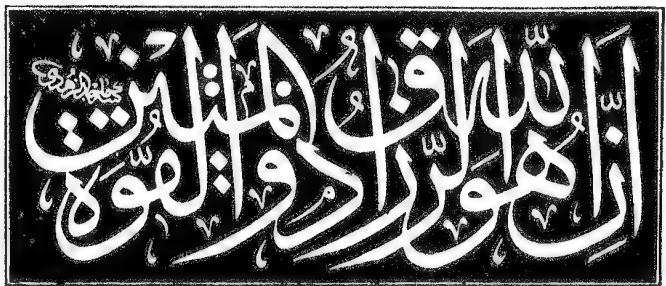 ان الله هو الرزاق ذو القوة المتين